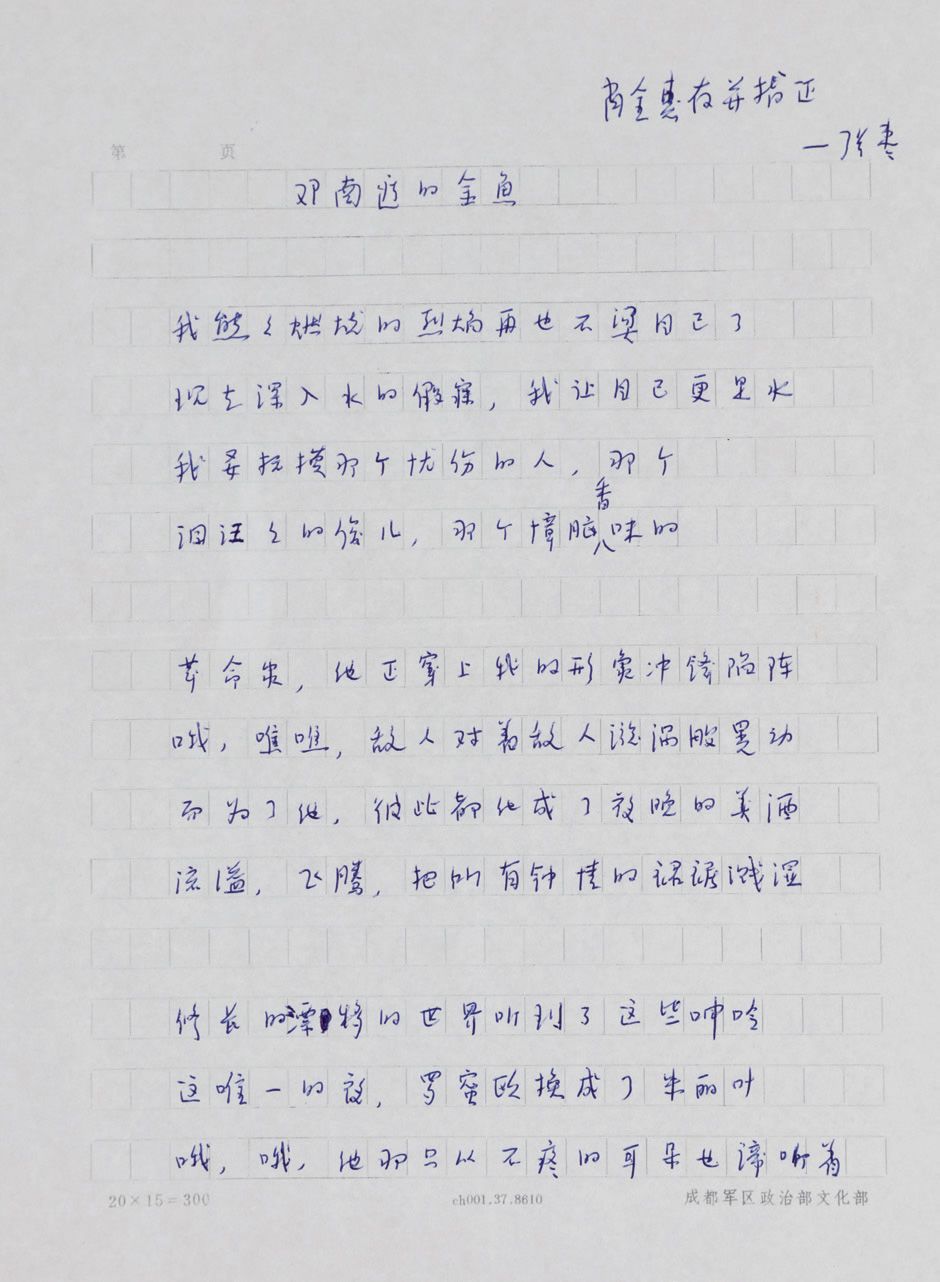 肖全惠存并指正
—张枣
第 页
邓南遮的金鱼
我熊々燃烧的烈焰再也不烫自己了
现在深入水的假寐，我让自己更是水
我要抚摸那个忧伤的人，那个
泪汪々的俊儿，那个樟脑香味的
革命家，他正穿上我的形象冲锋陷阵
哦，噍噍，敌人对着敌人漩涡般晃动
而为了他，彼此都化成了夜晚的美酒
流溢，飞腾，把所有钟情的裙裾溅湿
修长的漂将的世界听到了这些呻吟
这唯一的夜，罗蜜欧换成了朱丽叶
哦，哦，他那只从不疼的耳朵也谛听着
20×15=300
ch001.37.8610
成都军区政治部文化部